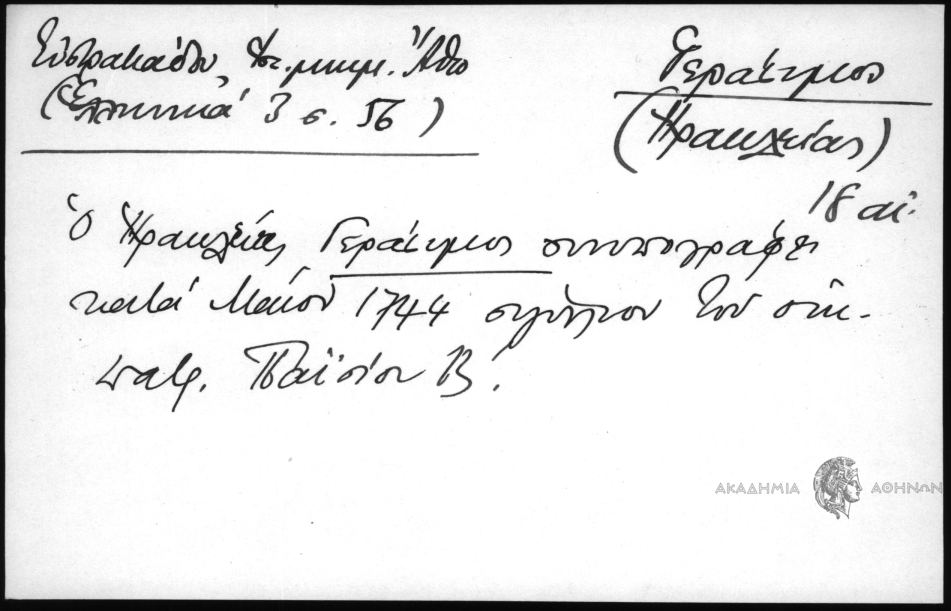 Εὐστρατιάδου, Ἱστ. μνημ. Ἄθω
(Ἑλληνικά 3 σ. 56)
Γεράσιμος
(Ἡρακλείας)
18 αἰ.
Ὁ Ἡρακλείας Γεράσιμος συνυπογράφει
κατά Μάϊον 1744 σιγίλλιον τοῦ οἰκ.
πατρ. Παϊσίου Β'.
ΑΚΑΔΗΜΙΑ ΑΘΗΝΩΝ